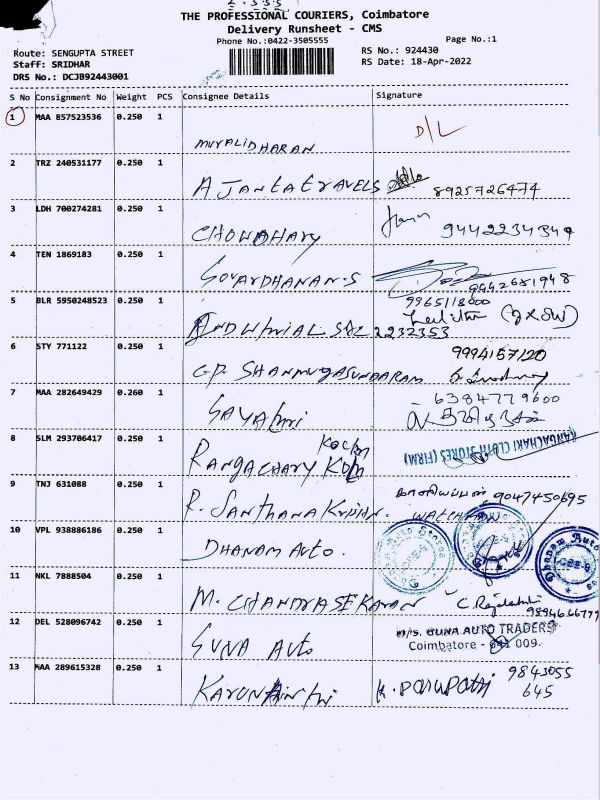 THE PROFESSIONAL COURIERS, Coimbatore
Delivery Runsheet - CMS
Phone No.:0422-3505555
Page No.:1
Route: SENGUPTA STREET
RS No.: 924430
Staff: SRIDHAR
RS Date: 18-Apr-2022
DRS No.: DCJB92443001
S No Consignment No Weight PCS Consignee Details Signature
1 MAA 857523536 0.250 1 MURALIDHARAN D/L
2 TRZ 240531177 0.250 1 AJANTA TRAVELS 8925726474
3 LDH 700274281 0.250 1 CHOWDHARY 9442234349
4 TEN 1869183 0.250 1 GOVARDHANAN.S 9442651948
5 BLR 5950248523 0.250 1 9965118000
2232353
6 STY 771122 0.250 1 GP. SHANMUGASUNDARAM 9994157120
7 MAA 282649429 0.260 1 GAYATHRI 6384779600
8 SLM 293706417 0.250 1 RANGACHARY RANGACHARI CLOTH STORES (FIRM)
9 TNJ 631088 0.250 1 R. SANTHANA 9047450695
WATCHMAN
10 VPL 938886186 0.250 1 DHANAM AUTO. Dhanam Auto
11 NKL 7888504 0.250 1 M. CHANDRASEKARAN
12 DEL 528096742 0.250 1 GUNA AUTO M/S. GUNA AUTO TRADERS
Coimbatore - 641 009.
13 MAA 289615328 0.250 1 9843055
645